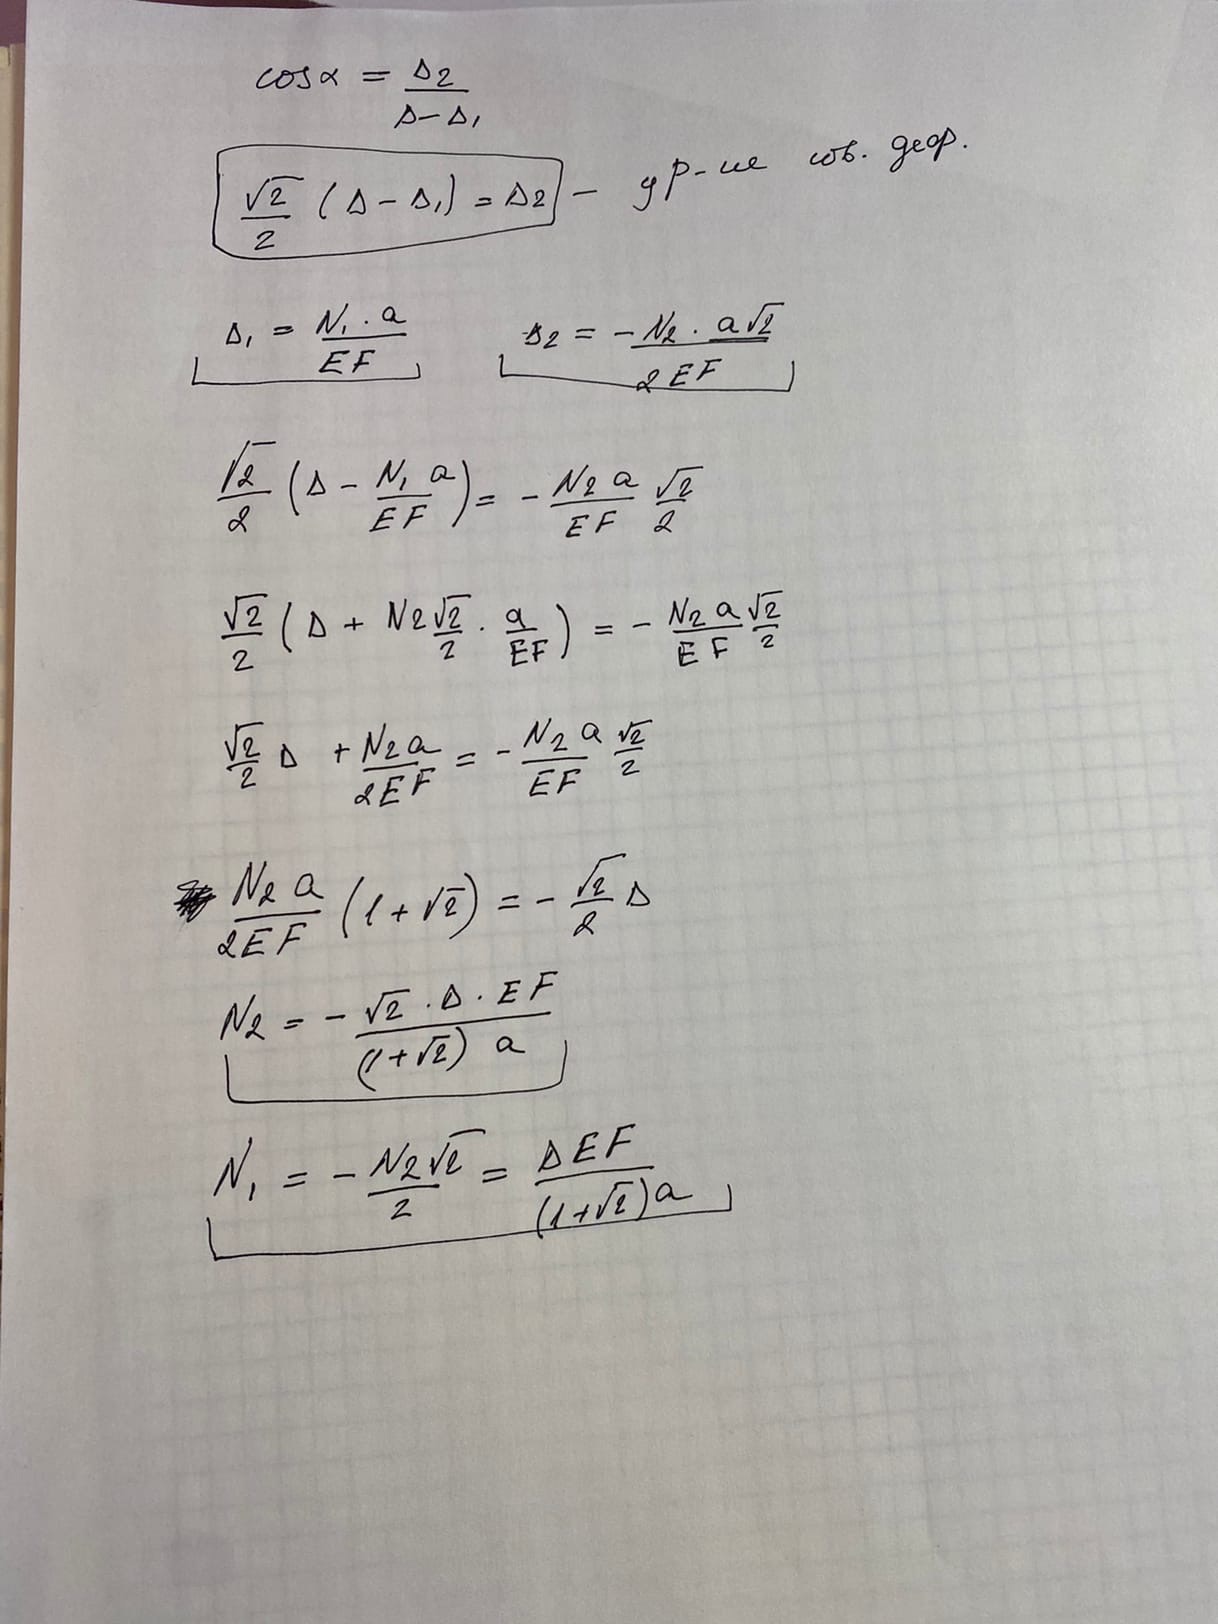 cos α = Δ2 / (Δ − Δ1)
√2/2 (Δ − Δ1) = Δ2 — ур-ие сов. деф.
Δ1 = N1 · a / EF    Δ2 = − N2 · a√2 / 2EF
√2/2 (Δ − N1 a / EF) = − N2 a / EF √2/2
√2/2 (Δ + N2 √2/2 · a/EF) = − N2 a / EF √2/2
√2/2 Δ + N2 a / 2EF = − N2 a / EF √2/2
N2 a / 2EF (1 + √2) = − √2/2 Δ
N2 = − √2 · Δ · EF / (1 + √2) a
N1 = − N2 √2 / 2 = Δ EF / (1 + √2) a